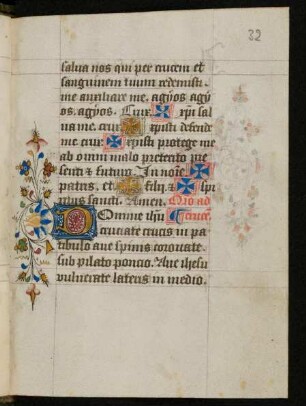 22
salua nos qui per crucem et
sanguinem tuum redemisti.
me auxiliare me. agyos agy
os. agyos. Crux. xpi sal
ua me. crux xpisti defende
me crux xpisti protege me
ab omni malo preterito pre
senti et futuro. In noie
patris. et filij. et spi
ritus sancti. Amen. Oro ad
Domine ihu crucem.
cruciate crucis in pa
tibulo aue spinis coronate.
sub pilato poncio. Aue ihesu
vulnerate lateris in medio.